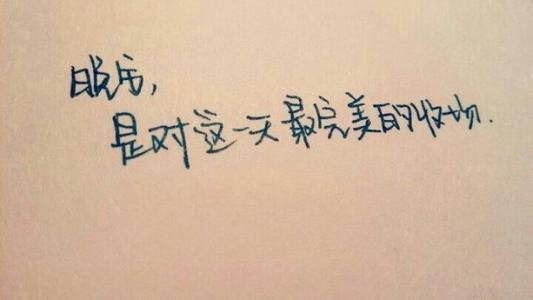 晚安,
是对这一天最完美的收场.